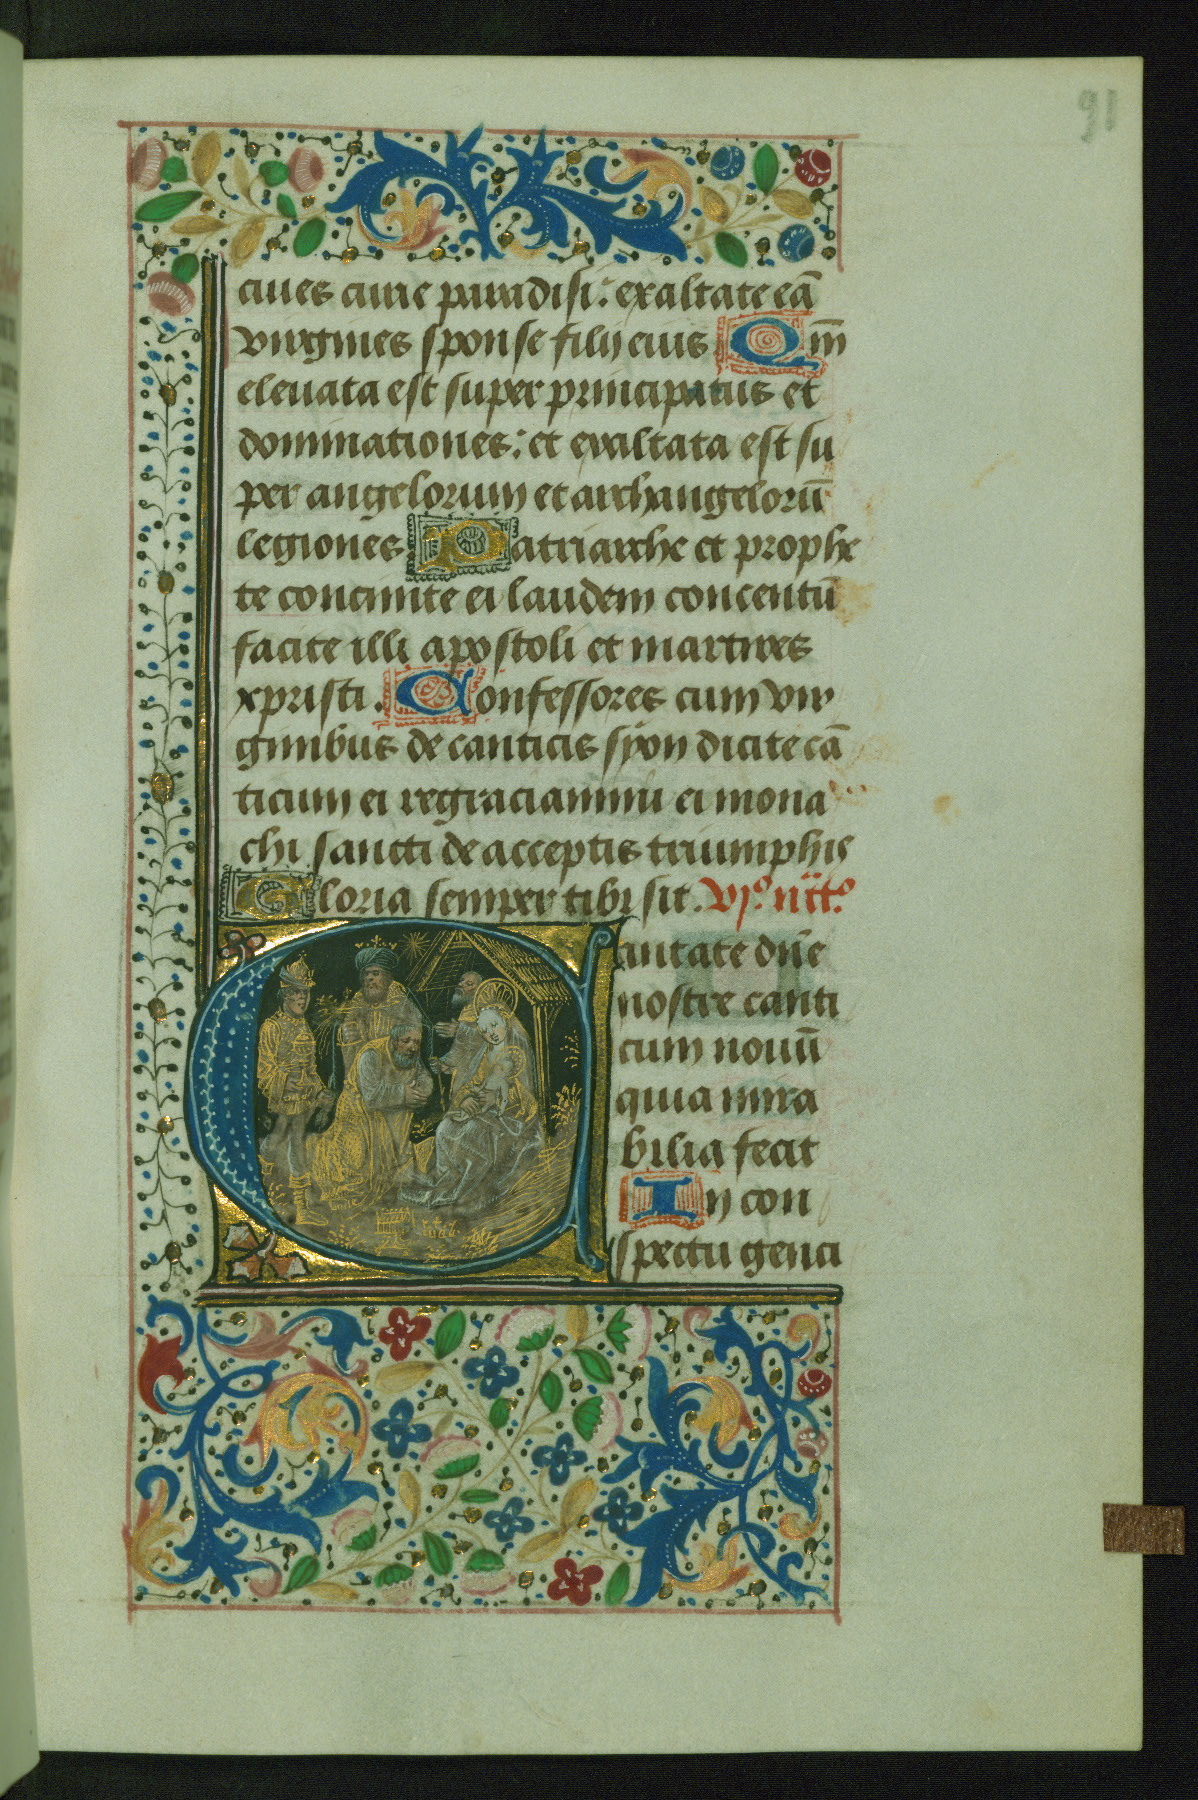 91
ciues curie paradisi: exaltate eā
virgines sponse filij eius Qm̄
eleuata est super principatus et
dominationes: et exaltata est su
per angelorum et archangelorū
legiones Patriarche et prophe
te concinite ei laudem concentū
facite illi apostoli et martires
xpristi. Confessores cum vir
ginibus de canticis syon dicite cā
ticum ei regraciamini ei mona
chi sancti de acceptis triumphis
Gloria semper tibi sit. vjº. nctº.
Cantate dn̄e
nostre canti
cum nouū
quia mira
bilia fecit
In con
spectu genti